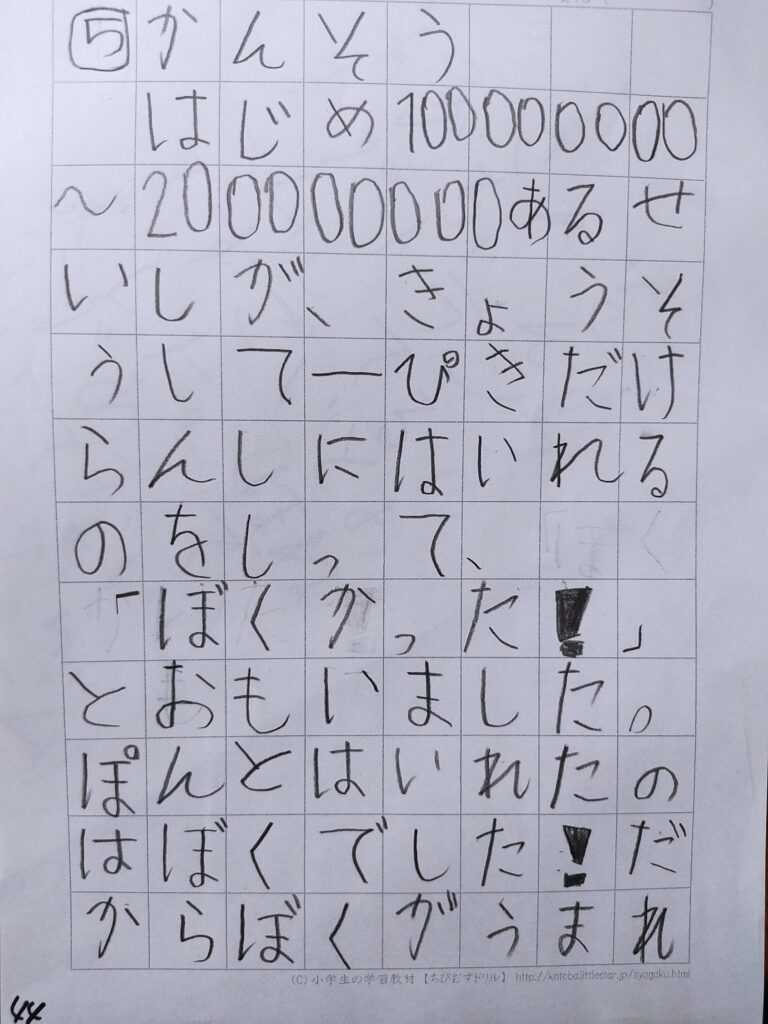 ⑤かんそう
はじめ100000000
～200000000あるせ
いしが、きょうそ
うして一ぴきだけ
らんしにはいれる
のをしって、
「ぼくかった!」
とおもいました。
ぽんとはいれたの
はぼくでした!だ
からぼくがうまれ
(C) 小学生の学習教材 【ちびむすドリル】 http://kotoba.littlestar.jp/syogaku.html
44